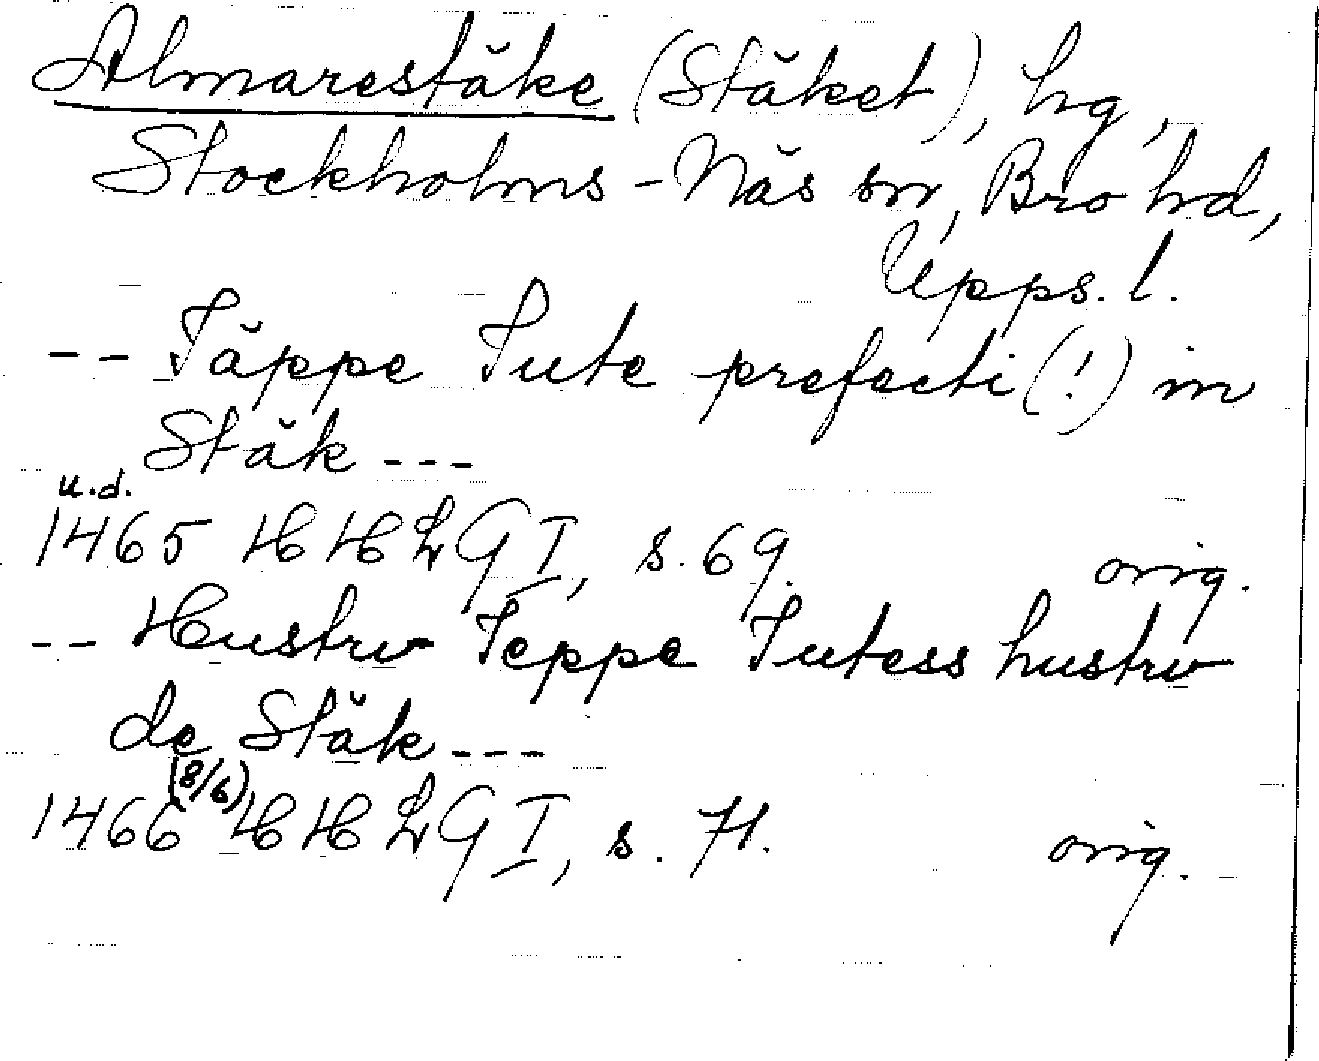 Almarestäke (Stäket), hg,
Stockholms-Näs sn, Bro hd,
Upps. l.
-- Jäppe Jute prefecti (!) in
Stäk ---
u.d.
1465 HHLG I, s. 69. orig.
-- Hustrv Jeppe Jutess hustrv
de Stäk ---
(8/6)
1466 HHLG I, s. 71. orig.